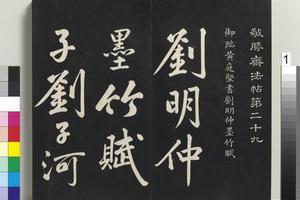 敬勝齋法帖第二十九
御臨黄庭堅書劉明仲墨竹賦
劉明仲
墨竹賦
子劉子河
1